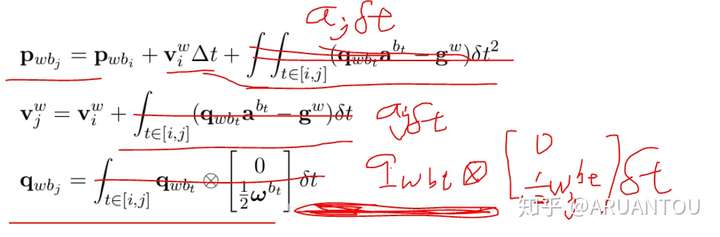 a_j δt
𝐩_{wb_j} = 𝐩_{wb_i} + 𝐯_i^w Δt + ∬_{t∈[i,j]} (𝐪_{wb_t} 𝐚^{b_t} − 𝐠^w) δt²
𝐯_j^w = 𝐯_i^w + ∫_{t∈[i,j]} (𝐪_{wb_t} 𝐚^{b_t} − 𝐠^w) δt a_j δt
𝐪_{wb_j} = ∫_{t∈[i,j]} 𝐪_{wb_t} ⊗ [0 ½𝛚^{b_t}] δt q_{wb_t} ⊗ [0 ½ω_j^{bt}] δt
知乎 @ARUANTOU